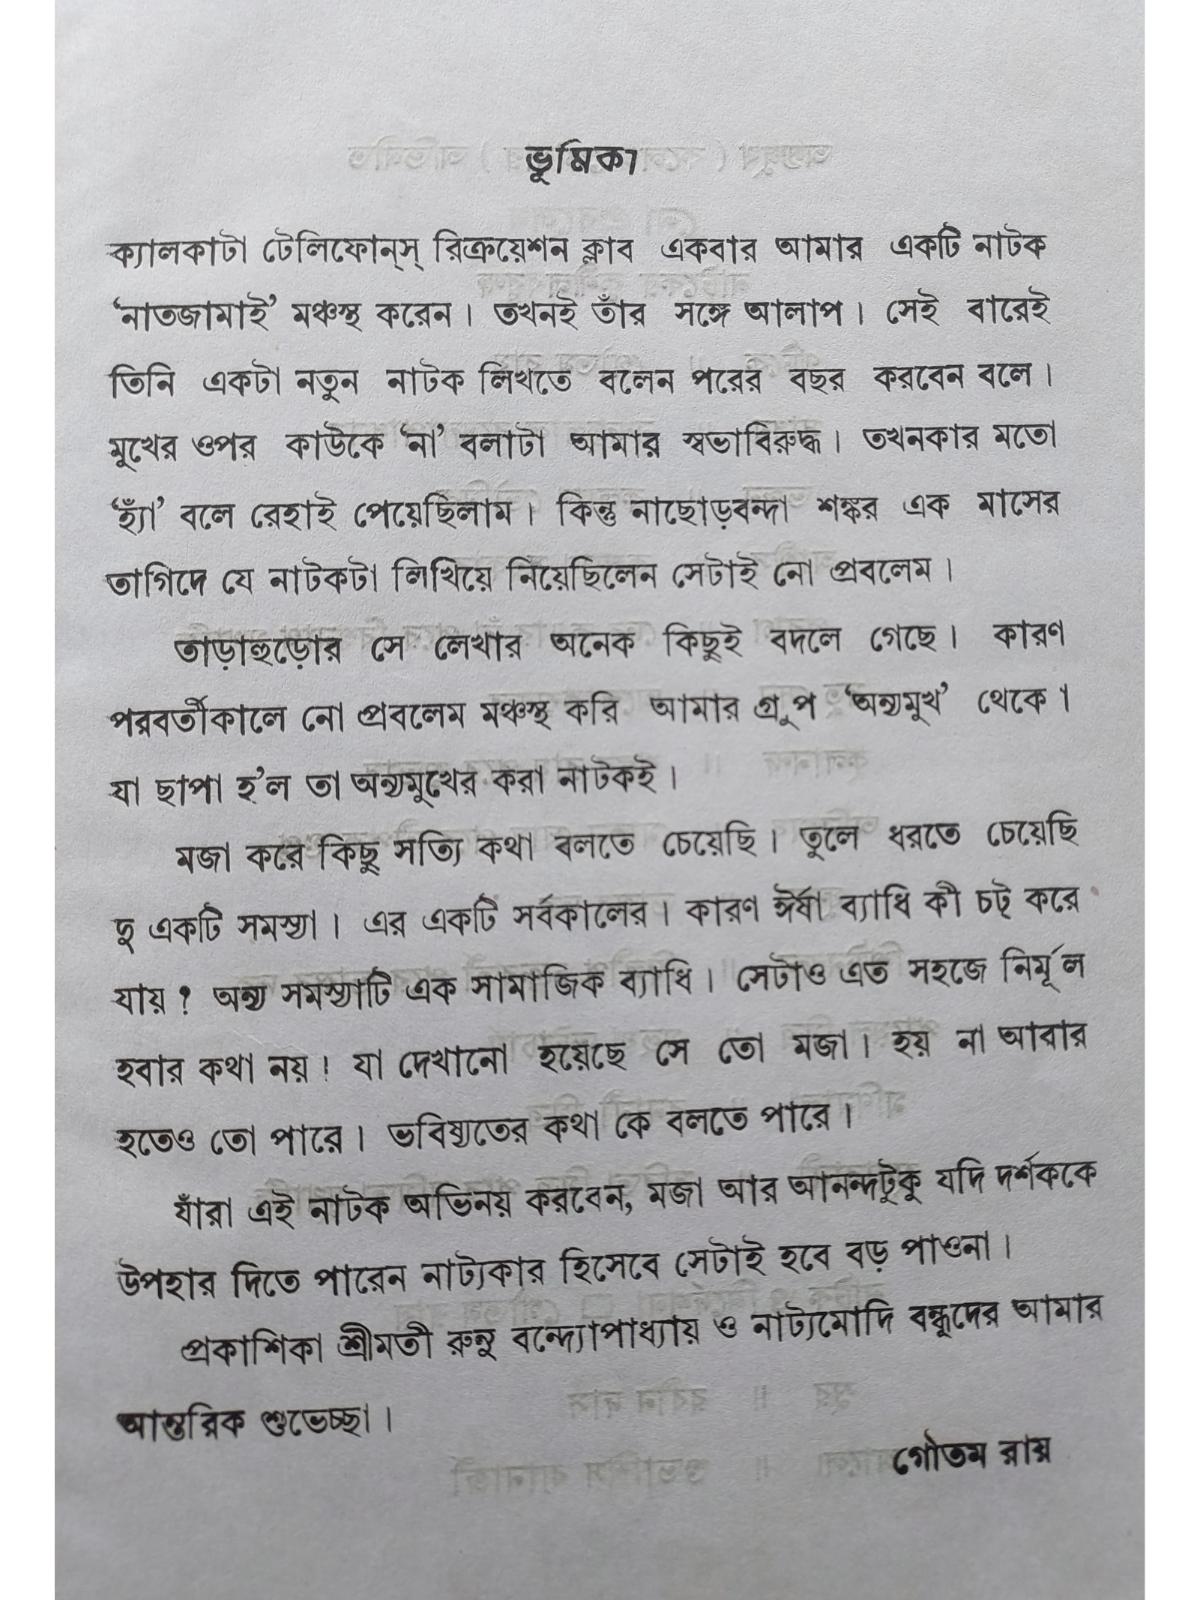 ভূমিকা
ক্যালকাটা টেলিফোন্‌স্ রিক্রয়েশন ক্লাব একবার আমার একটি নাটক
‘নাতজামাই’ মঞ্চস্থ করেন। তখনই তাঁর সঙ্গে আলাপ। সেই বারেই
তিনি একটা নতুন নাটক লিখতে বলেন পরের বছর করবেন বলে।
মুখের ওপর কাউকে ‘না’ বলাটা আমার স্বভাবিরুদ্ধ। তখনকার মতো
‘হ্যাঁ’ বলে রেহাই পেয়েছিলাম। কিন্তু নাছোড়বন্দা শঙ্কর এক মাসের
তাগিদে যে নাটকটা লিখিয়ে নিয়েছিলেন সেটাই নো প্রবলেম।
তাড়াহুড়োর সে লেখার অনেক কিছুই বদলে গেছে। কারণ
পরবর্তীকালে নো প্রবলেম মঞ্চস্থ করি আমার গ্রুপ ‘অন্যমুখ’ থেকে।
যা ছাপা হ’ল তা অন্যমুখের করা নাটকই।
মজা করে কিছু সত্যি কথা বলতে চেয়েছি। তুলে ধরতে চেয়েছি
দু একটি সমস্যা। এর একটি সর্বকালের। কারণ ঈর্ষা ব্যাধি কী চট্ করে
যায়? অন্য সমস্যাটি এক সামাজিক ব্যাধি। সেটাও এত সহজে নির্মূল
হবার কথা নয়! যা দেখানো হয়েছে সে তো মজা। হয় না আবার
হতেও তো পারে। ভবিষ্যতের কথা কে বলতে পারে।
যাঁরা এই নাটক অভিনয় করবেন, মজা আর আনন্দটুকু যদি দর্শককে
উপহার দিতে পারেন নাট্যকার হিসেবে সেটাই হবে বড় পাওনা।
প্রকাশিকা শ্রীমতী রুনু বন্দ্যোপাধ্যায় ও নাট্যমোদি বন্ধুদের আমার
আন্তরিক শুভেচ্ছা।
গৌতম রায়